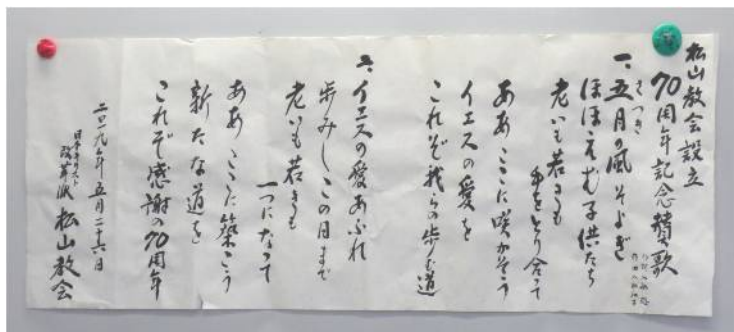 松山教会設立
70周年記念賛歌
一、五月の風そよぎ
さつき
ほほえむ子供たち
老いも若きも
手をとり合って
ああここに咲かそう
イエスの愛を
これぞ我らの歩む道
二、イエスの愛あふれ
歩みしこの日まで
老いも若きも
一つになって
ああここに築こう
新たな道を
これぞ感謝の70周年
二〇一九年五月二十六日
日本キリスト
改革派松山教会